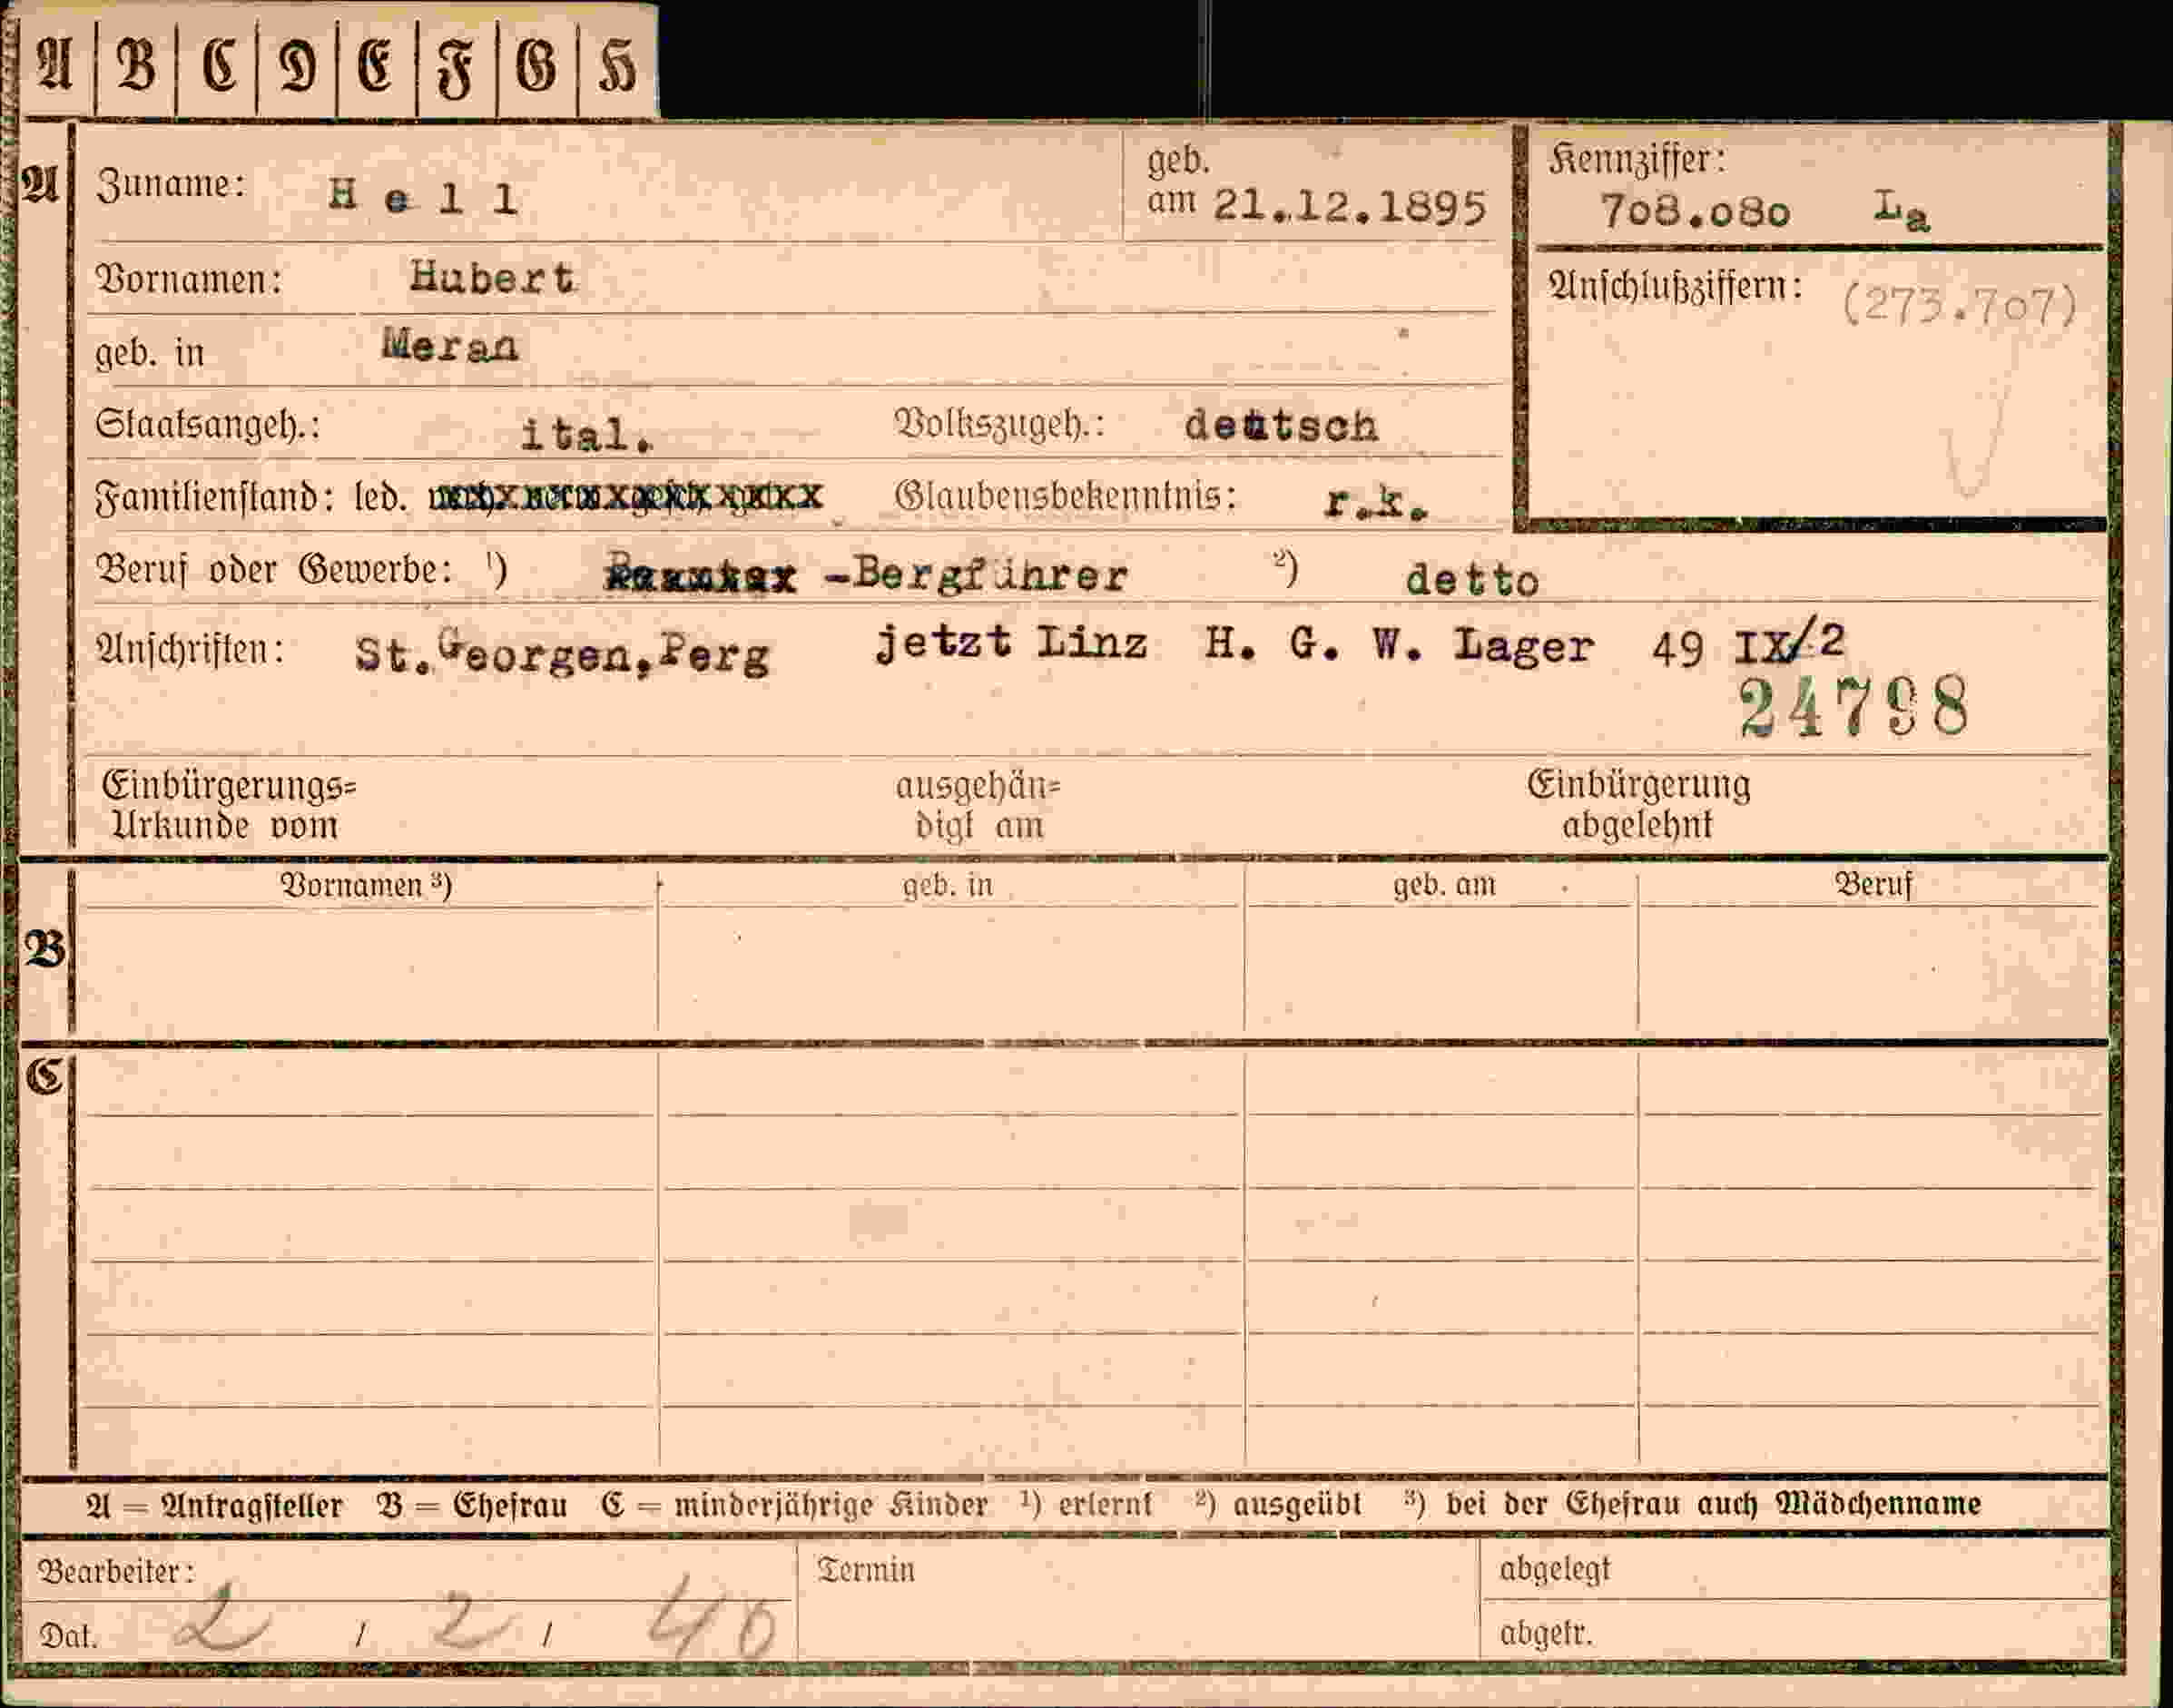 A B C D E F G H
A Zuname: Hell geb. am 21.12.1895 Kennziffer: 708.080 La
Vornamen: Hubert
Anschlußziffern: (273.707)
geb. in Meran
Staatsangeh.: ital. Volkszugeh.: deutsch
Familienstand: led. Glaubensbekenntnis: r.k.
Beruf oder Gewerbe: ¹) -Bergführer ²) detto
Anschriften: St.Georgen,Perg jetzt Linz H. G. W. Lager 49 IX/2
24798
Einbürgerungs= ausgehän= Einbürgerung
Urkunde vom digt am abgelehnt
Vornamen ³) geb. in geb. am Beruf
B
C
A = Antragsteller B = Ehefrau C = minderjährige Kinder ¹) erlernt ²) ausgeübt ³) bei der Ehefrau auch Mädchenname
Bearbeiter: Termin abgelegt
Dat. 2 / 2 / 40 abgetr.